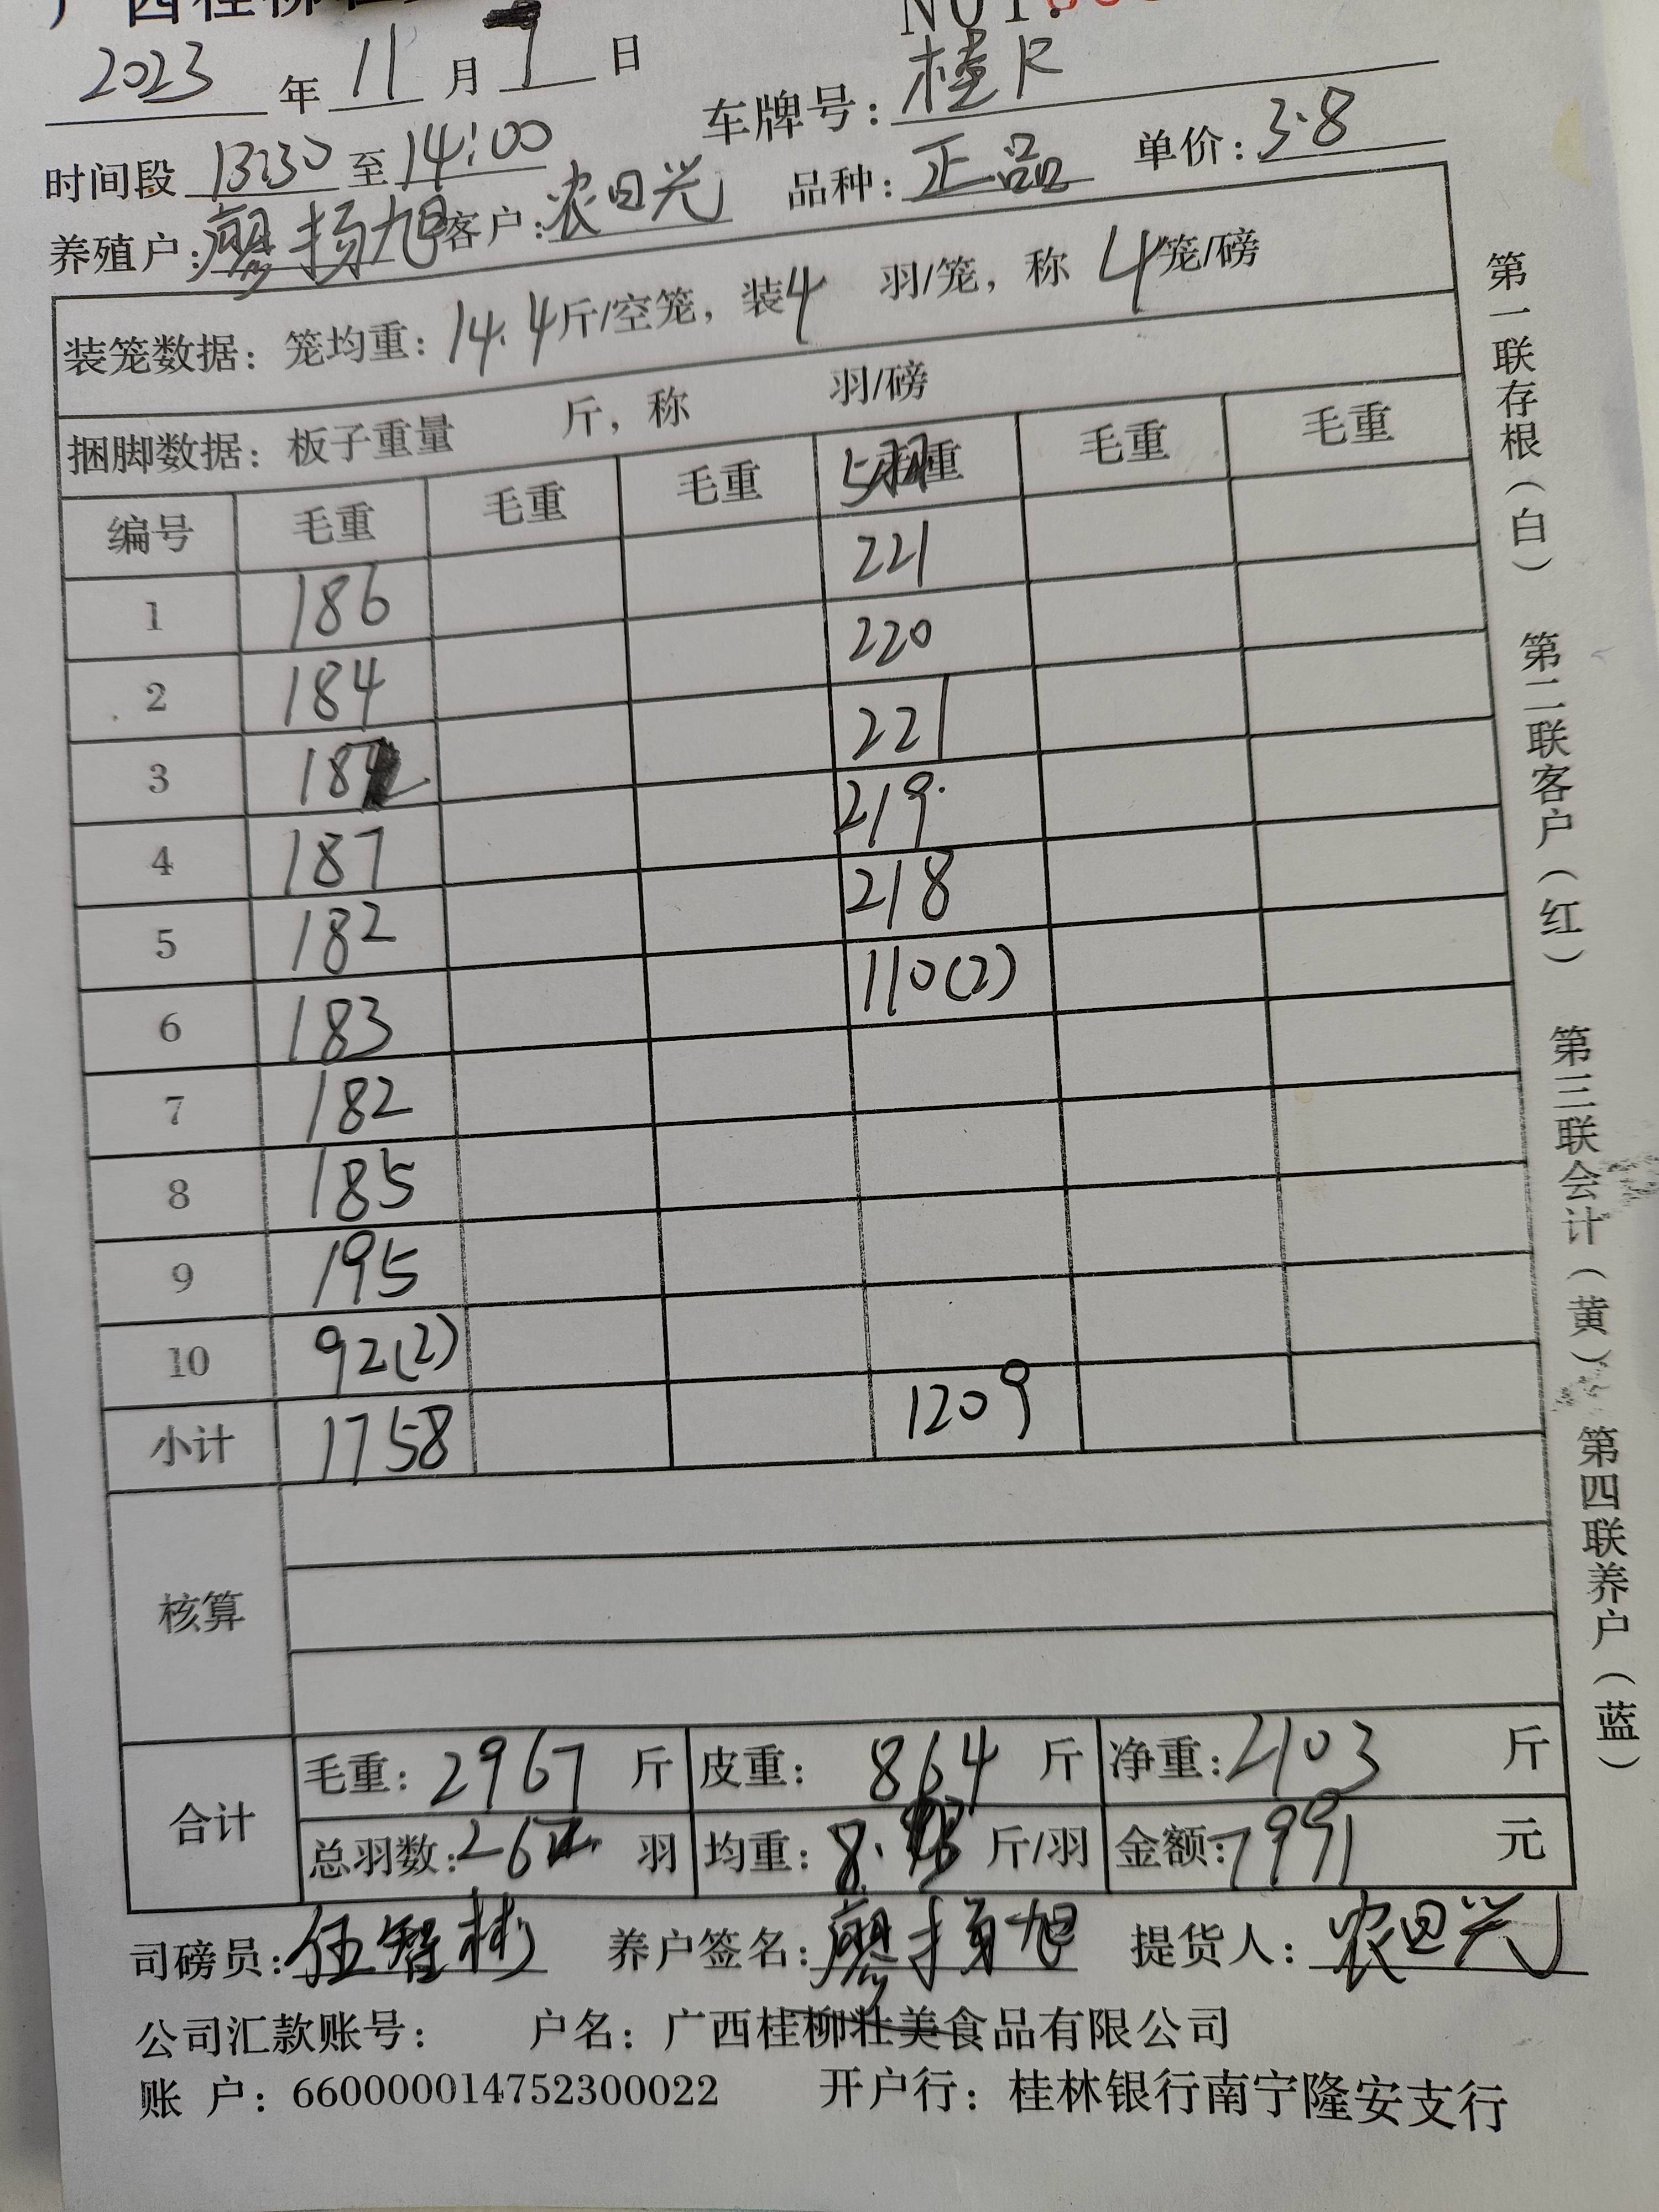 广西桂柳壮
NO1:
2023年11月9日
车牌号:桂R
时间段 13:30至14:00
品种:正品 单价:3.8
养殖户:廖扬旭 客户:农田兴
装笼数据:笼均重:14.4斤/空笼,装4 羽/笼,称 4笼/磅
捆脚数据:板子重量 斤,称 羽/磅
编号 毛重 毛重 毛重 毛重 毛重 毛重
1 186 221
2 184 220
3 182 221
4 187 219
5 182 218
6 183 110(2)
7 182
8 185
9 195
10 92(2)
小计 1758 1209
核算
合计 毛重:2967斤 皮重:864斤 净重:2103斤
总羽数:26 羽 均重:8. 斤/羽 金额:7991元
司磅员:伍智彬 养户签名:廖扬旭 提货人:农田兴
公司汇款账号: 户名:广西桂柳壮美食品有限公司
账 户:660000014752300022 开户行:桂林银行南宁隆安支行
第一联存根(白) 第二联客户(红) 第三联会计(黄) 第四联养户(蓝)